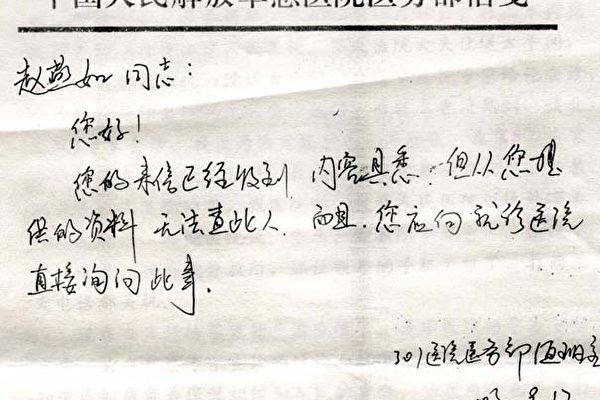 中国人民解放军总医院医务部信笺
赵燕如同志：
您好！
您的来信已经收到，内容具悉。但从您提
供的资料无法查此人，而且，您应向就诊医院
直接询问此事。
301医院医务部